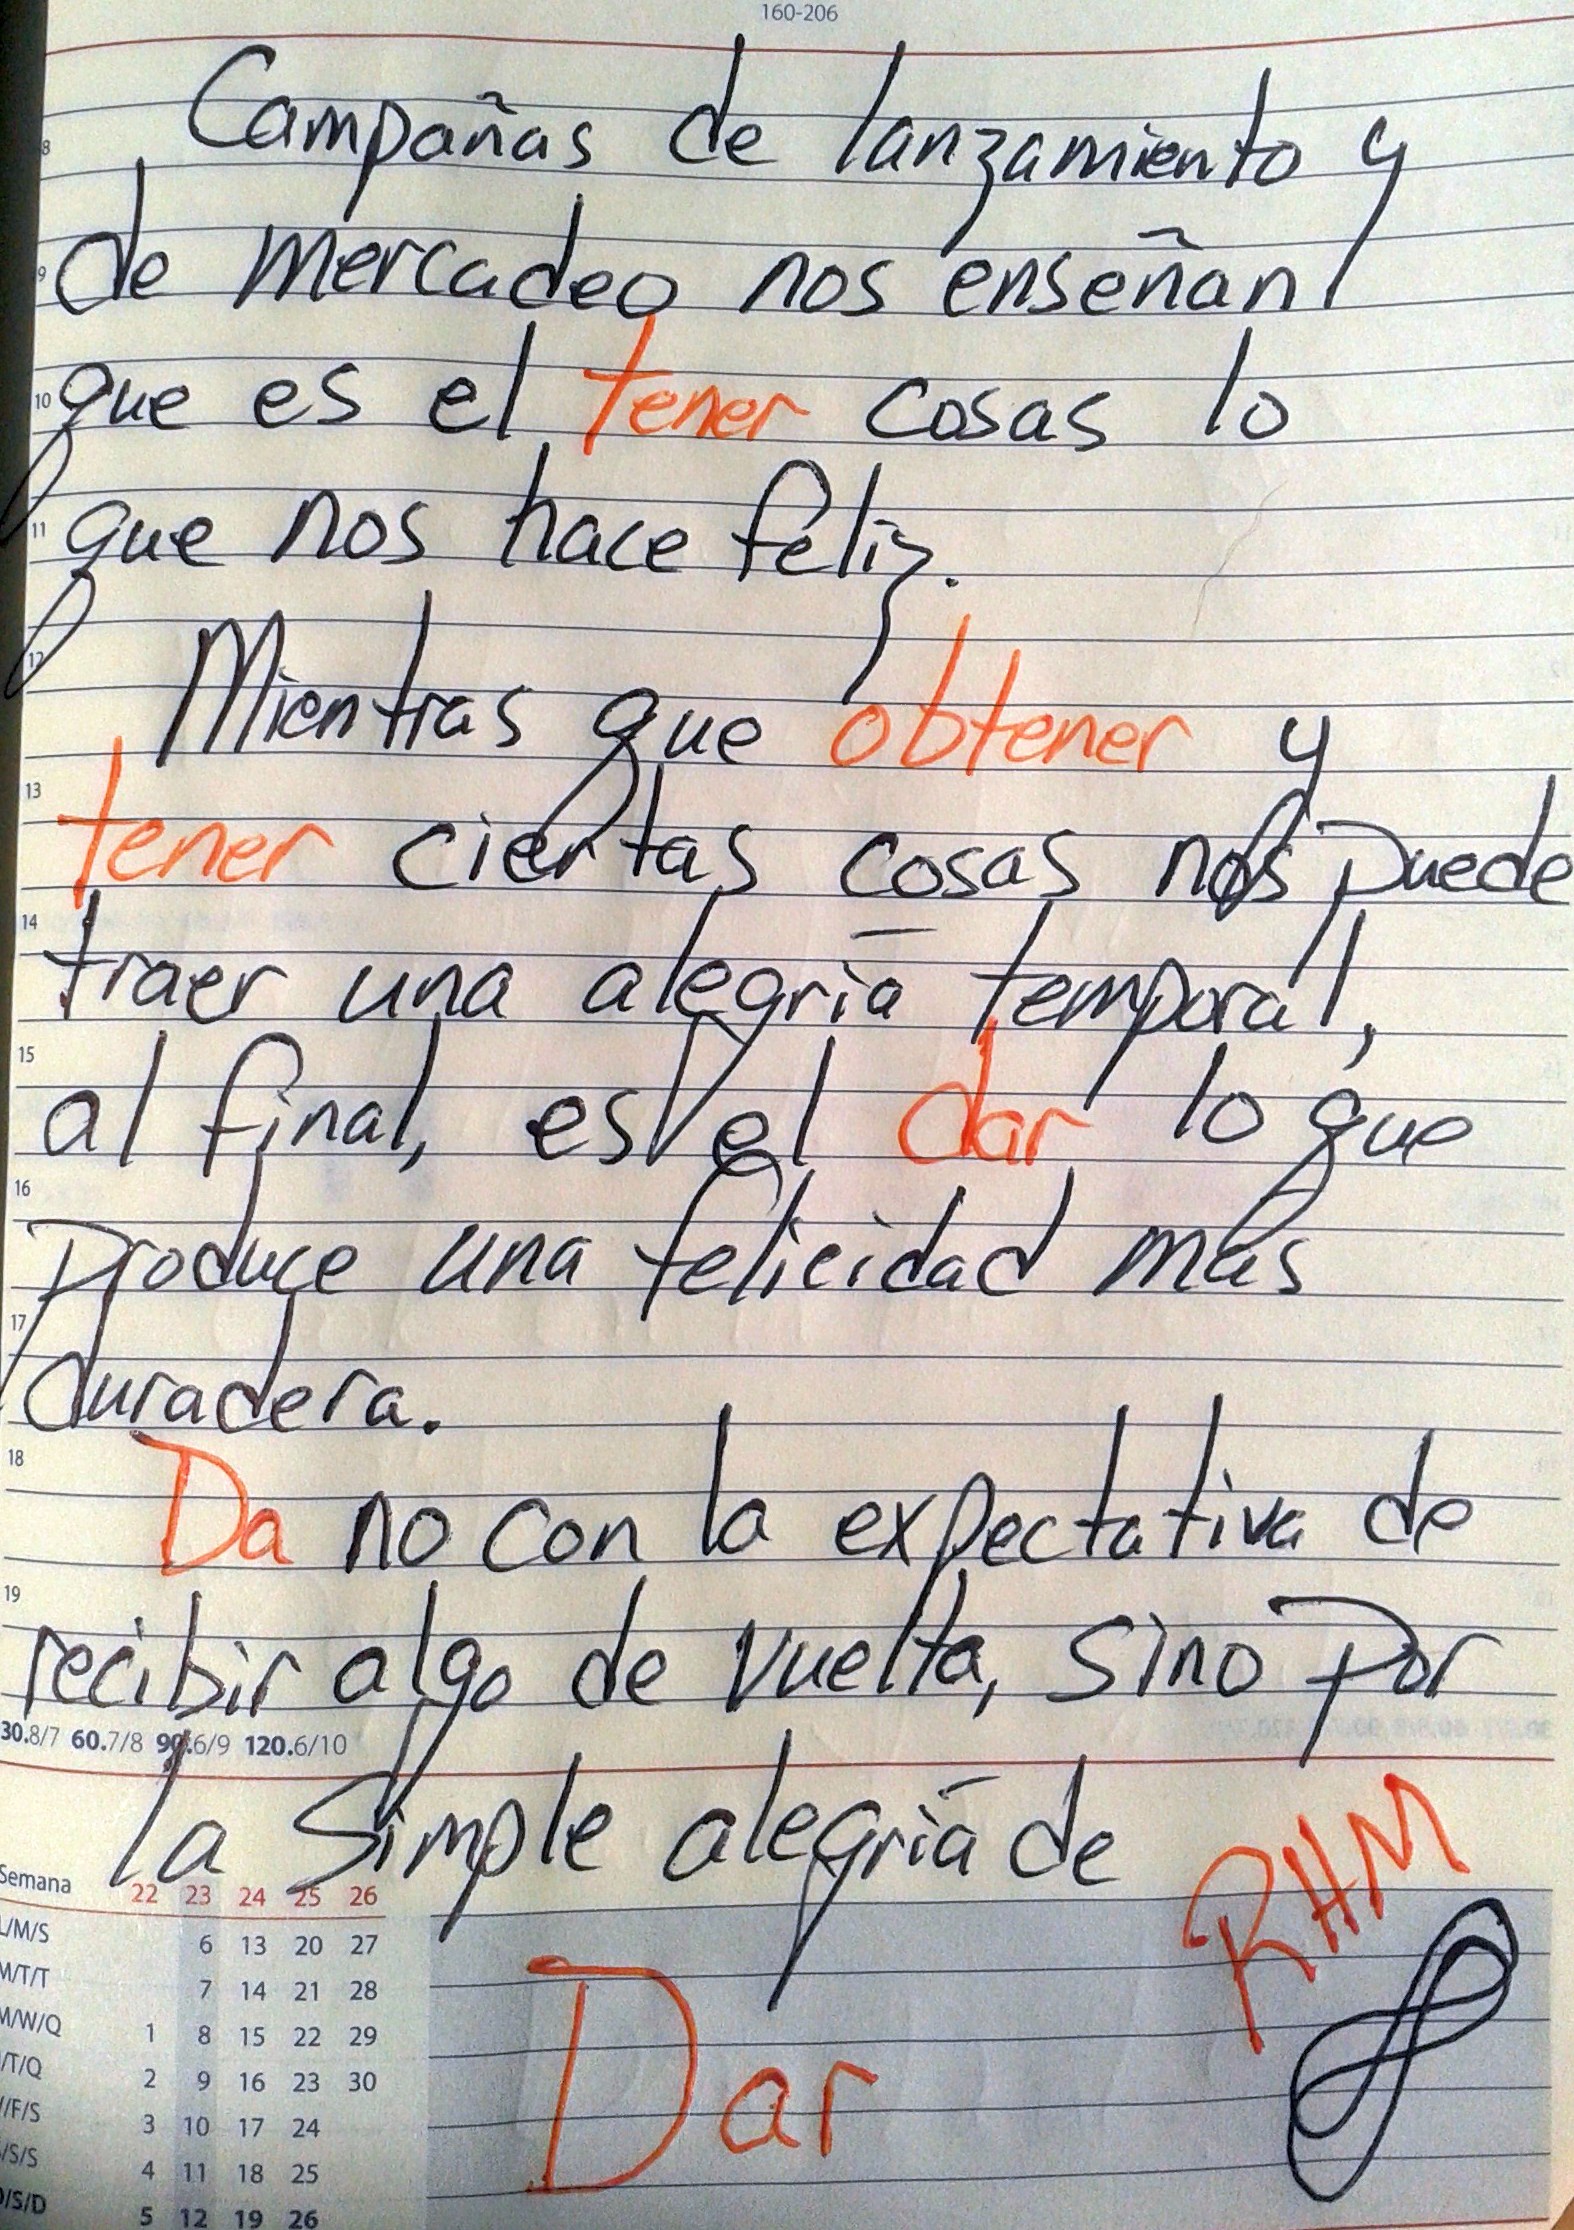 160-206
Campañas de lanzamiento y
8
de mercadeo nos enseñan
9
que es el tener cosas lo
10
que nos hace feliz.
11
12
Mientras que obtener y
13
tener ciertas cosas nos puede
14
traer una alegría temporal,
15
al final, es el dar lo que
16
produce una felicidad más
17
duradera.
18
Da no con la expectativa de
19
recibir algo de vuelta, sino por
30.8/7 60.7/8 90.6/9 120.6/10
la simple alegría de
RHM
Dar
Semana 22 23 24 25 26
L/M/S 6 13 20 27
M/T/T 7 14 21 28
M/W/Q 1 8 15 22 29
/T/Q 2 9 16 23 30
/F/S 3 10 17 24
/S/S 4 11 18 25
D/S/D 5 12 19 26